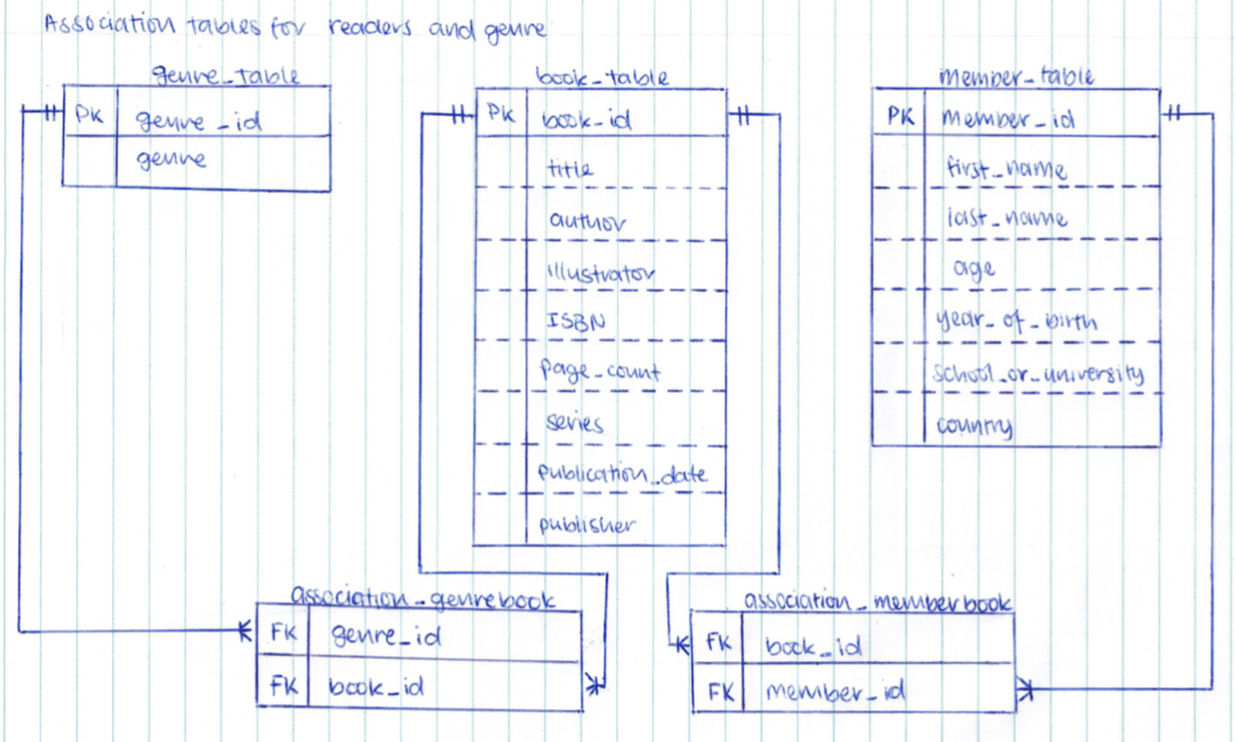 Association tables for readers and genre
genre_table
PK genre_id
genre
book_table
PK book_id
title
author
illustrator
ISBN
page_count
series
publication_date
publisher
member_table
PK member_id
first_name
last_name
age
year_of_birth
school_or_university
country
association_genrebook
FK genre_id
FK book_id
association_memberbook
FK book_id
FK member_id